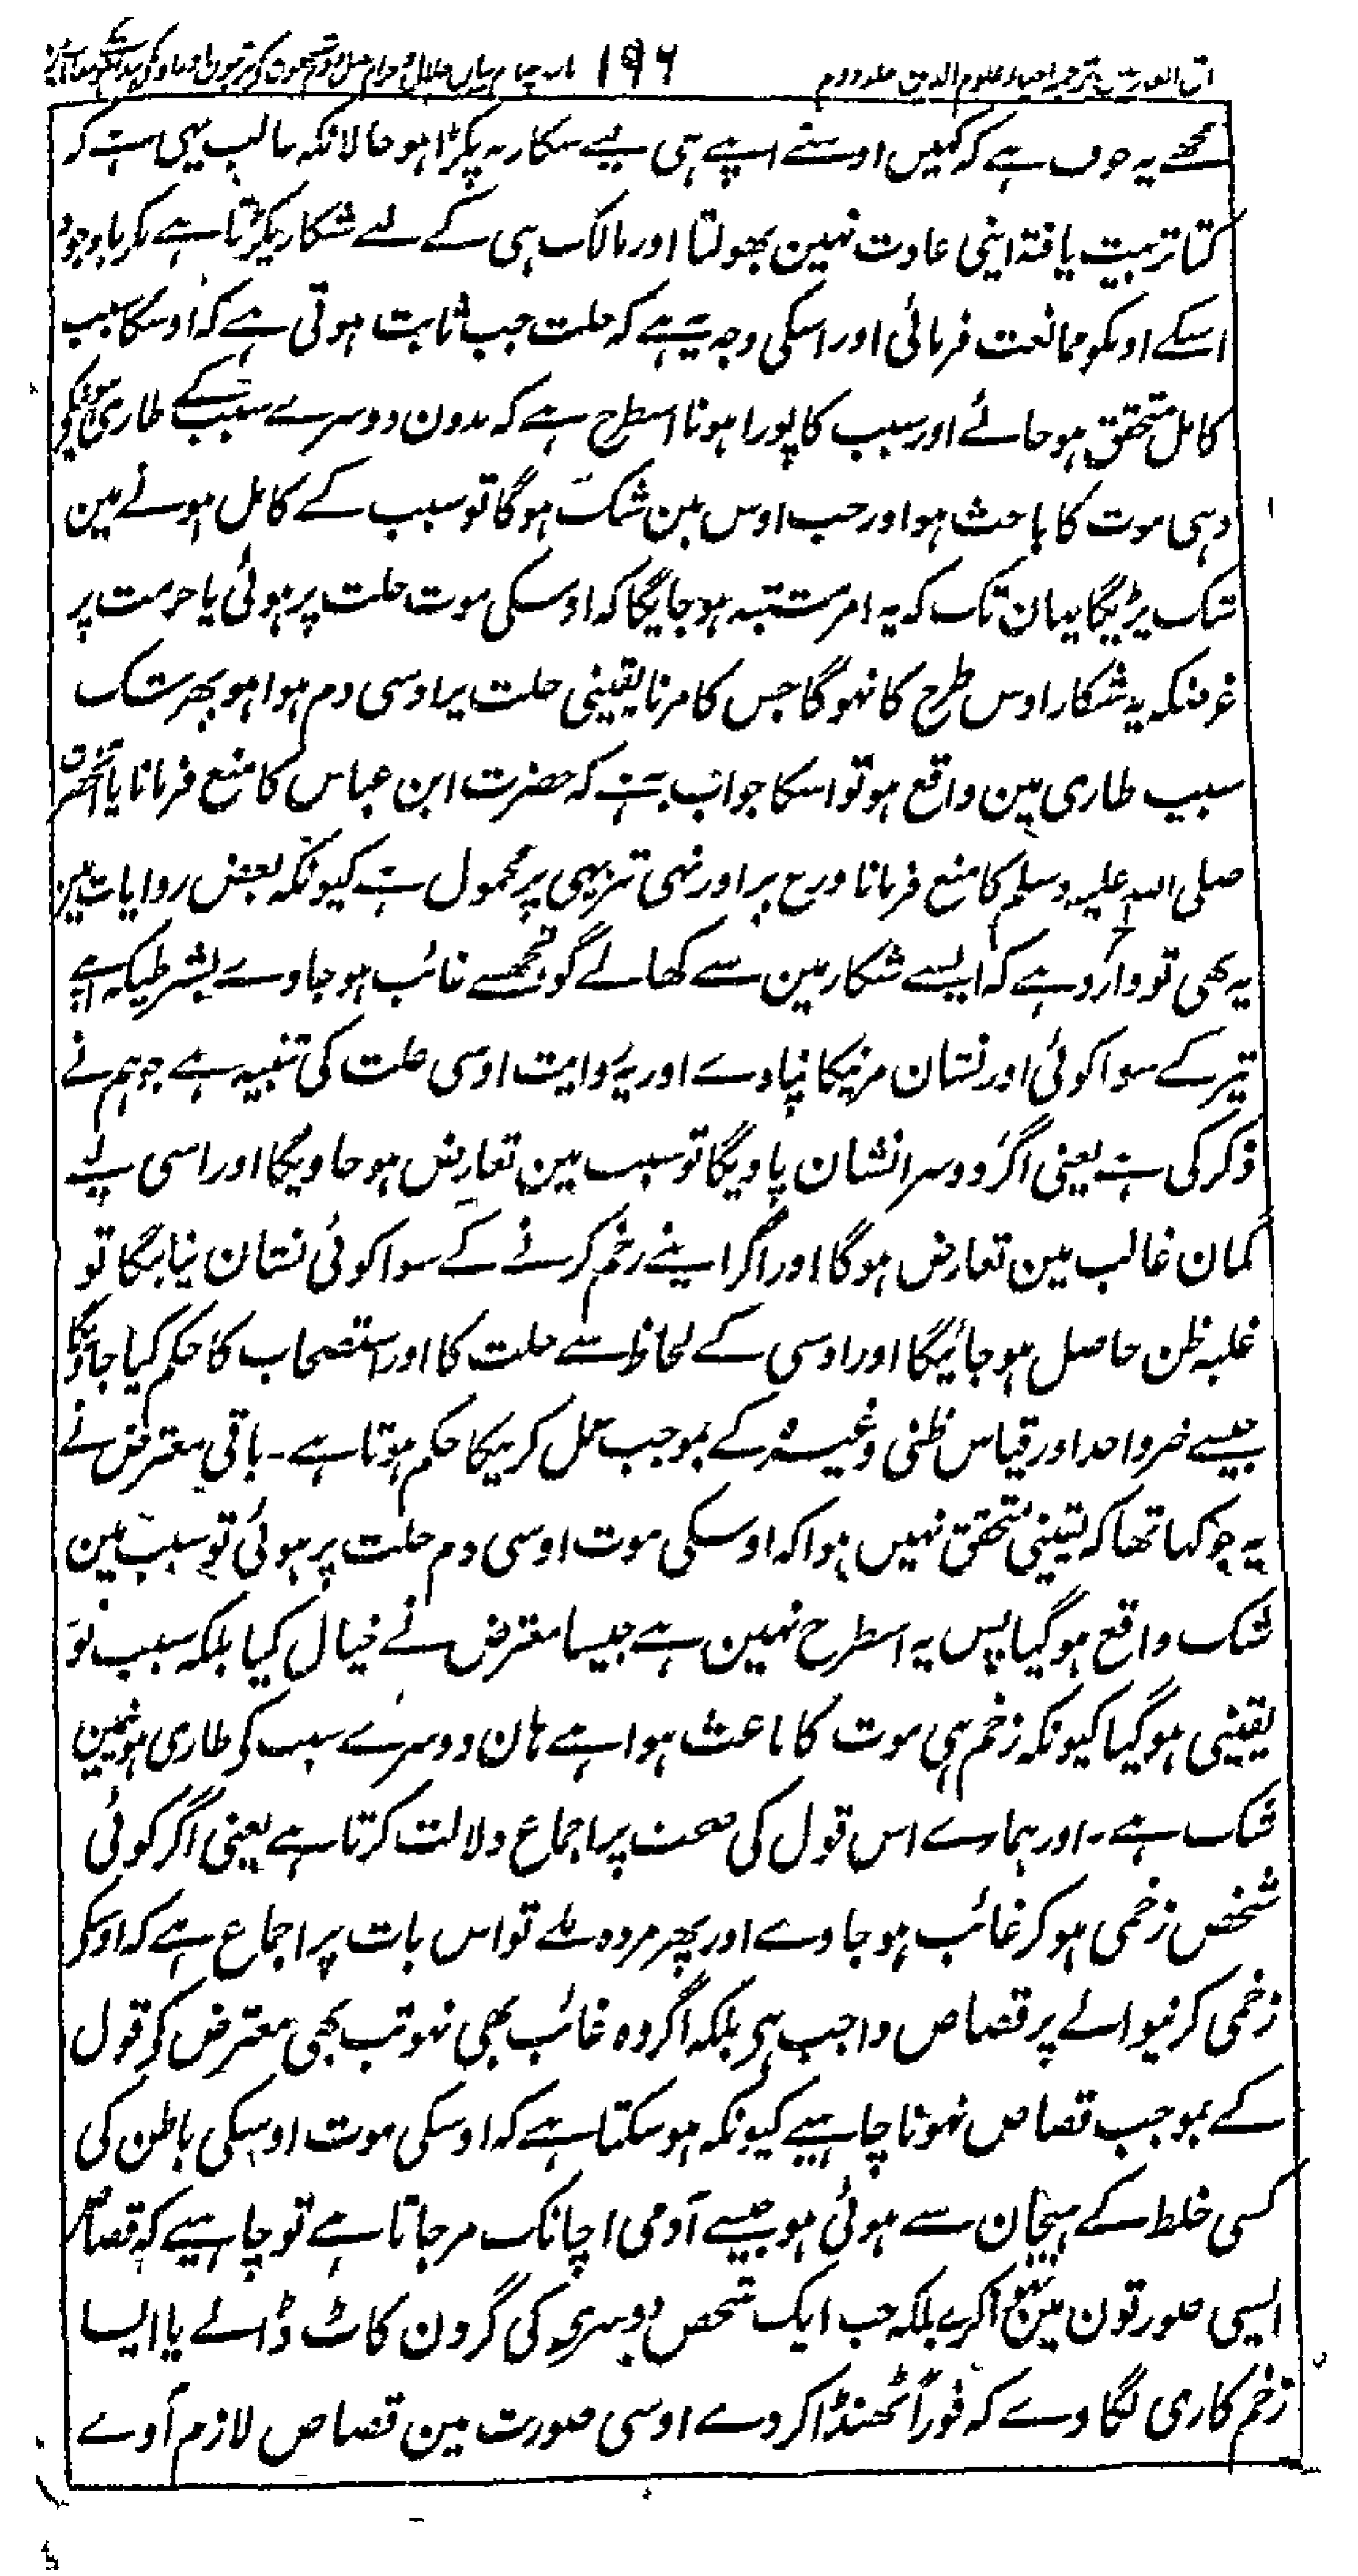 ۱۹۶
مجھے یہ خوف ہے کہ کہیں اوسنے اپنے ہی لیے شکار نہ پکڑا ہو حالانکہ غالب یہی ہے کہ
کتا تربیت یافتہ اپنی عادت نہین بھولتا اور مالک ہی کے لئے شکار پکڑتا ہے مگر باوجود
اسکے اونکو ممانعت فرمائی اور اسکی وجہ یہ ہے کہ حلت جب ثابت ہوتی ہے کہ اوسکا سبب
کامل متحقق ہو جائے اور سبب کا پورا ہونا اسطرح ہے کہ بدون دوسرے سبب کے طاری ہونیکے
وہی موت کا باعث ہو اور جب اوس مین شک ہوگا تو سبب کے کامل ہونے مین
شک پڑیگا یہان تک کہ یہ امر مشتبہ ہو جائیگا کہ اوسکی موت حلت پر ہوئی یا حرمت پر
غرضکہ یہ شکار اوس طرح کا نہوگا جس کا مرنا یقینی حلت پر اوسی دم ہوا ہو پھر شک
سبب طاری مین واقع ہو تو اسکا جواب یہ ہے کہ حضرت ابن عباس کا منع فرمانا یا آنحضرت
صلی اللہ علیہ وسلم کا منع فرمانا ورع پر اور نہی تنزیہی پر محمول ہے کیونکہ بعض روایات مین
یہ بھی تو وارد ہے کہ ایسے شکار مین سے کھالے گو تجھسے غائب ہو جاوے بشرطیکہ اپنے
تیر کے سوا کوئی اور نشان مرنیکا نپاوے اور یہ روایت اوسی علت کی تنبیہ ہے جو ہم نے
ذکر کی ہے یعنی اگر دوسرا نشان پاویگا تو سبب مین تعارض ہو جاویگا اور اسی لیے
گمان غالب مین تعارض ہوگا اور اگر اپنے زخم کرنے کے سوا کوئی نشان نپائیگا تو
غلبہ ظن حاصل ہو جائیگا اور اوسی کے لحاظ سے حلت کا اور استصحاب کا حکم کیا جاویگا
جیسے خبر واحد اور قیاس ظنی وغیرہ کے بموجب عمل کرنیکا حکم ہوتا ہے ۔ باقی معترض نے
یہ جو کہا تھا کہ یقینی متحقق نہیں ہوا کہ اوسکی موت اوسی دم حلت پر ہوئی تو سبب مین
شک واقع ہوگیا پس یہ اسطرح نہین ہے جیسا معترض نے خیال کیا بلکہ سبب تو
یقینی ہوگیا کیونکہ زخم ہی موت کا باعث ہوا ہے ہان دوسرے سبب کی طاری ہونیمین
شک ہے ۔ اور ہمارے اس قول کی صحت پر اجماع دلالت کرتا ہے یعنی اگر کوئی
شخص زخمی ہو کر غائب ہو جاوے اور پھر مردہ ملے تو اس بات پر اجماع ہے کہ اوسکے
زخمی کرنیوالے پر قصاص واجب ہی بلکہ اگر وہ غائب بھی نہو تب بھی معترض کے قول
کے بموجب قصاص نہونا چاہیے کیونکہ ہو سکتا ہے کہ اوسکی موت اوسکی باطن کی
کسی خلط کے ہیجان سے ہوئی ہو جیسے آدمی اچانک مر جاتا ہے تو چاہیے کہ قصاص
ایسی صورتون مین منع کرے بلکہ جب ایک شخص دوسری کی گردن کاٹ ڈالے یا ایسا
زخم کاری لگاوے کہ فوراً ٹھنڈا کردے اوسی صورت مین قصاص لازم آوے